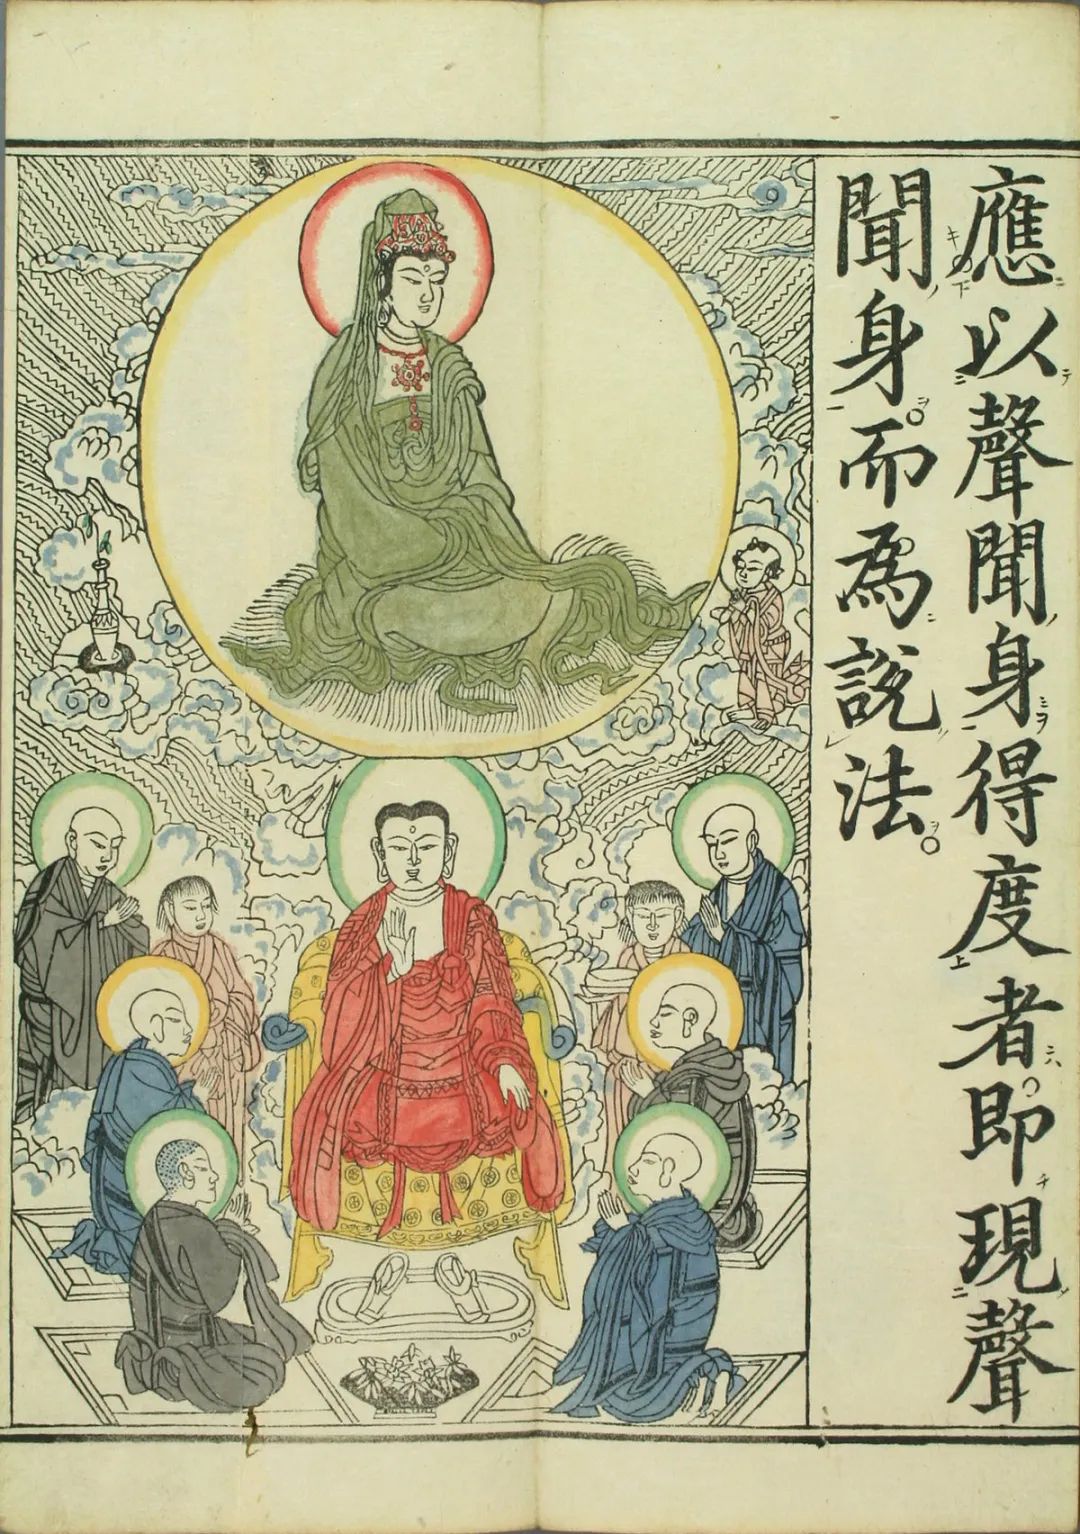 應以聲聞身得度者即現聲
聞身而為説法